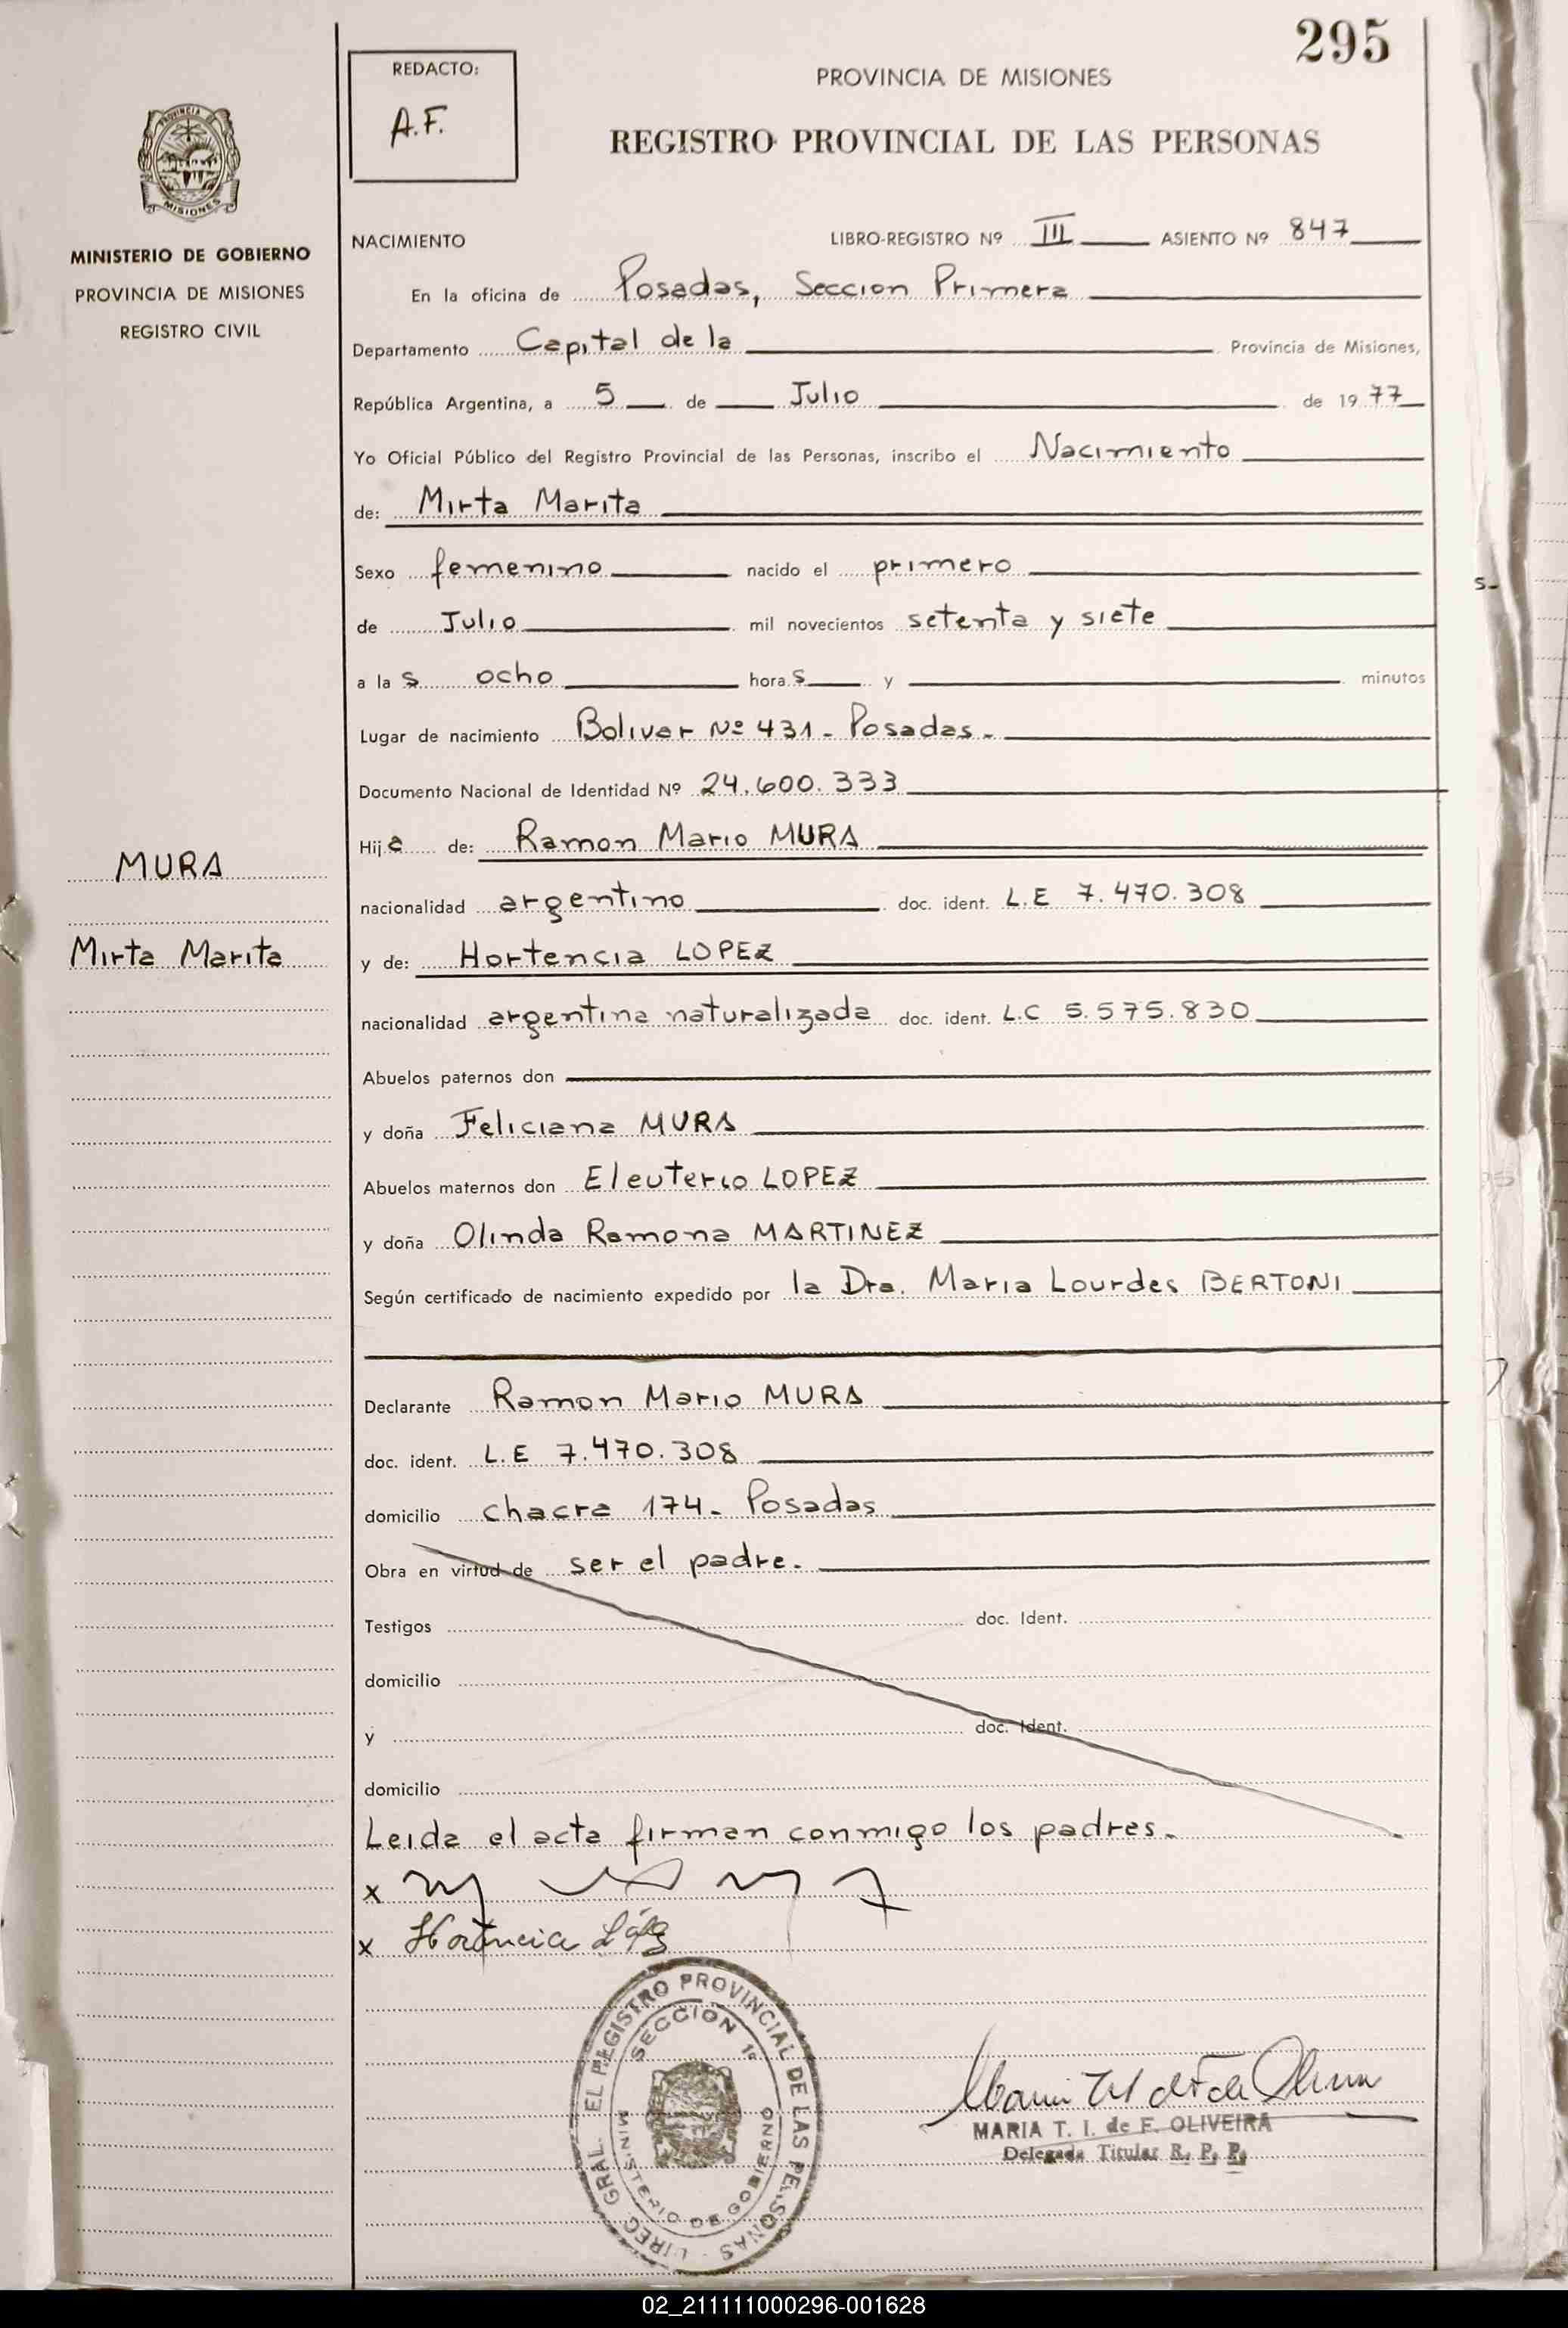 295
REDACTO:
A.F.
PROVINCIA DE MISIONES
REGISTRO PROVINCIAL DE LAS PERSONAS
PROVINCIA DE
MISIONES
MINISTERIO DE GOBIERNO
PROVINCIA DE MISIONES
REGISTRO CIVIL
NACIMIENTO LIBRO-REGISTRO Nº III ASIENTO Nº 847
En la oficina de Posadas, Seccion Primera
Departamento Capital de la Provincia de Misiones,
República Argentina, a 5 de Julio de 1977
Yo Oficial Público del Registro Provincial de las Personas, inscribo el Nacimiento
de: Mirta Marita
Sexo femenino nacido el primero
de Julio mil novecientos setenta y siete
a las ocho horas y minutos
Lugar de nacimiento Bolivar Nº 431 - Posadas -
Documento Nacional de Identidad Nº 24.600.333
Hija de: Ramon Mario MURA
MURA
nacionalidad argentino doc. ident. L.E 7.470.308
Mirta Marita
y de: Hortencia LOPEZ
nacionalidad argentina naturalizada doc. ident. L.C 5.575.830
Abuelos paternos don
y doña Feliciana MURA
Abuelos maternos don Eleuterio LOPEZ
y doña Olinda Ramona MARTINEZ
Según certificado de nacimiento expedido por la Dra. Maria Lourdes BERTONI
Declarante Ramon Mario MURA
doc. ident. L.E 7.470.308
domicilio chacra 174 - Posadas
Obra en virtud de ser el padre.
Testigos doc. Ident.
domicilio
y doc. Ident.
domicilio
Leida el acta firman conmigo los padres.
x
x Hortencia López
EL REGISTRO PROVINCIAL DE LAS PERSONAS - DIREC. GRAL.
SECCION 1ª
MINISTERIO DE GOBIERNO
MARIA T. I. de F. OLIVEIRA
Delegada Titular R. P. P.
02_211111000296-001628